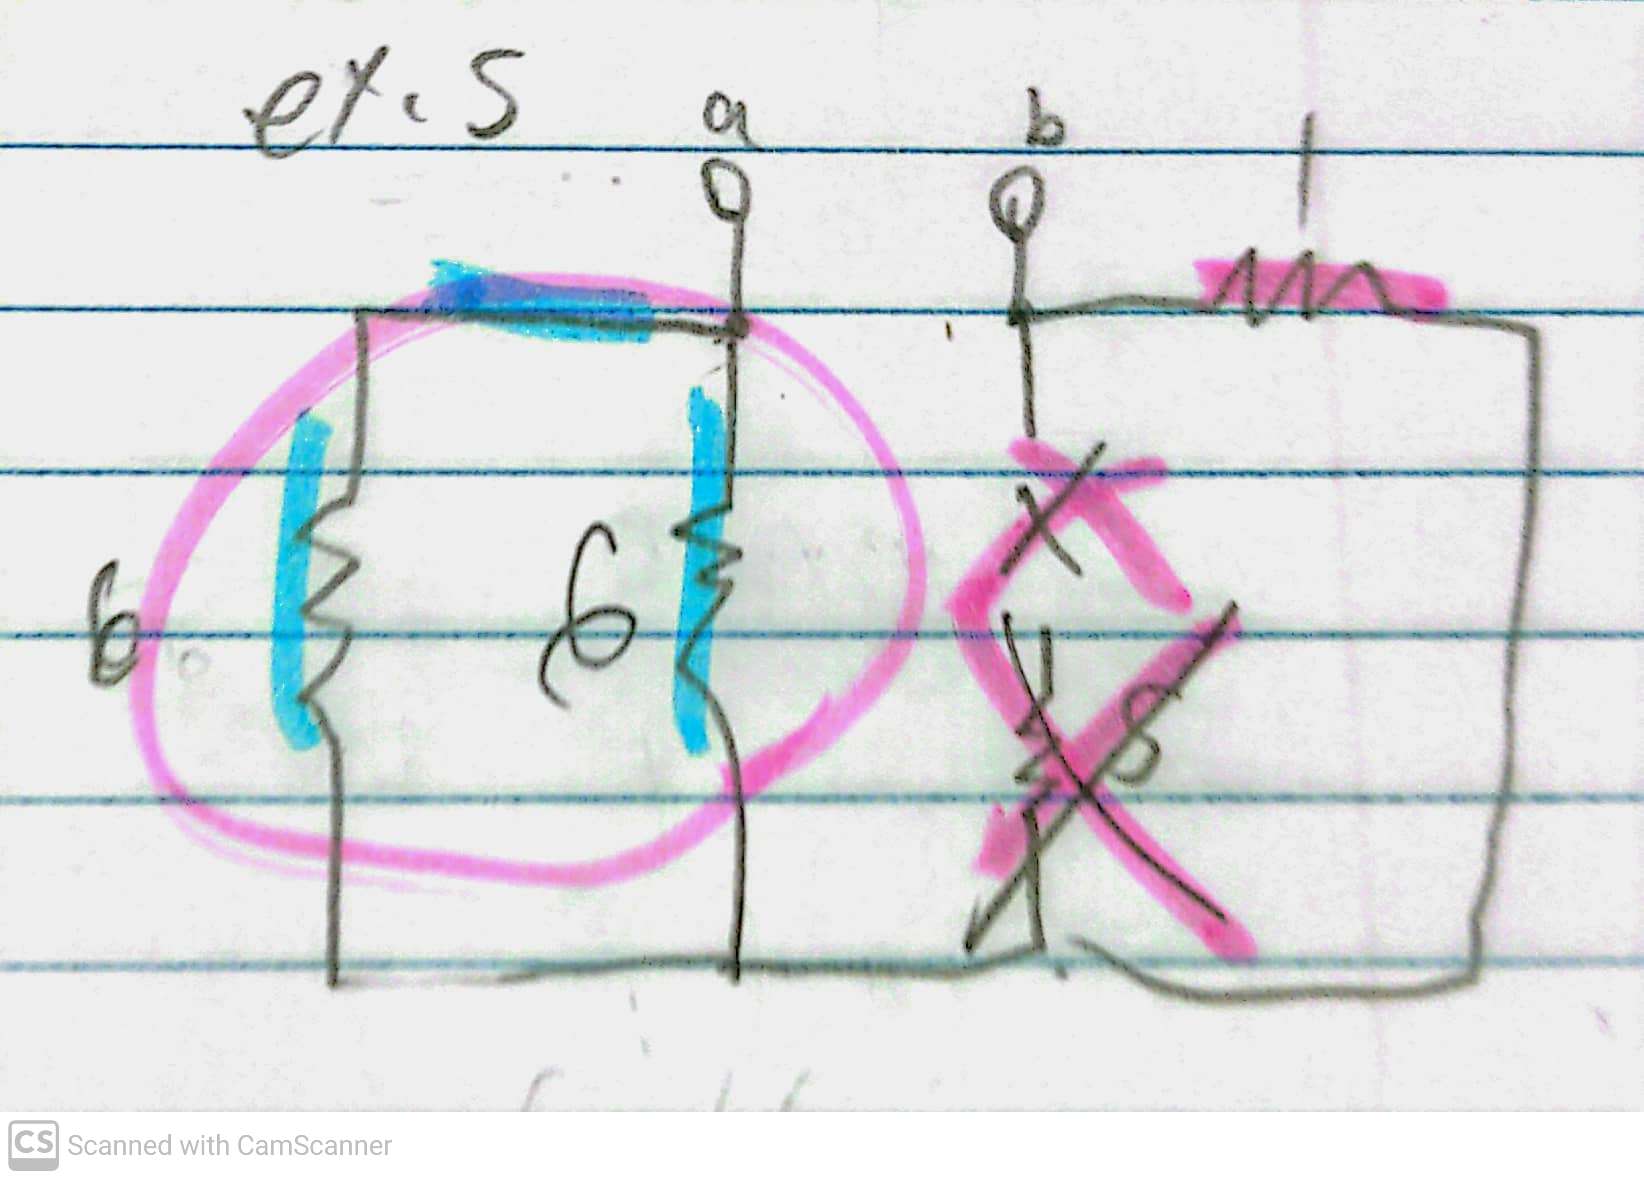 ex. 5
a b 1
6 6 8
CS Scanned with CamScanner